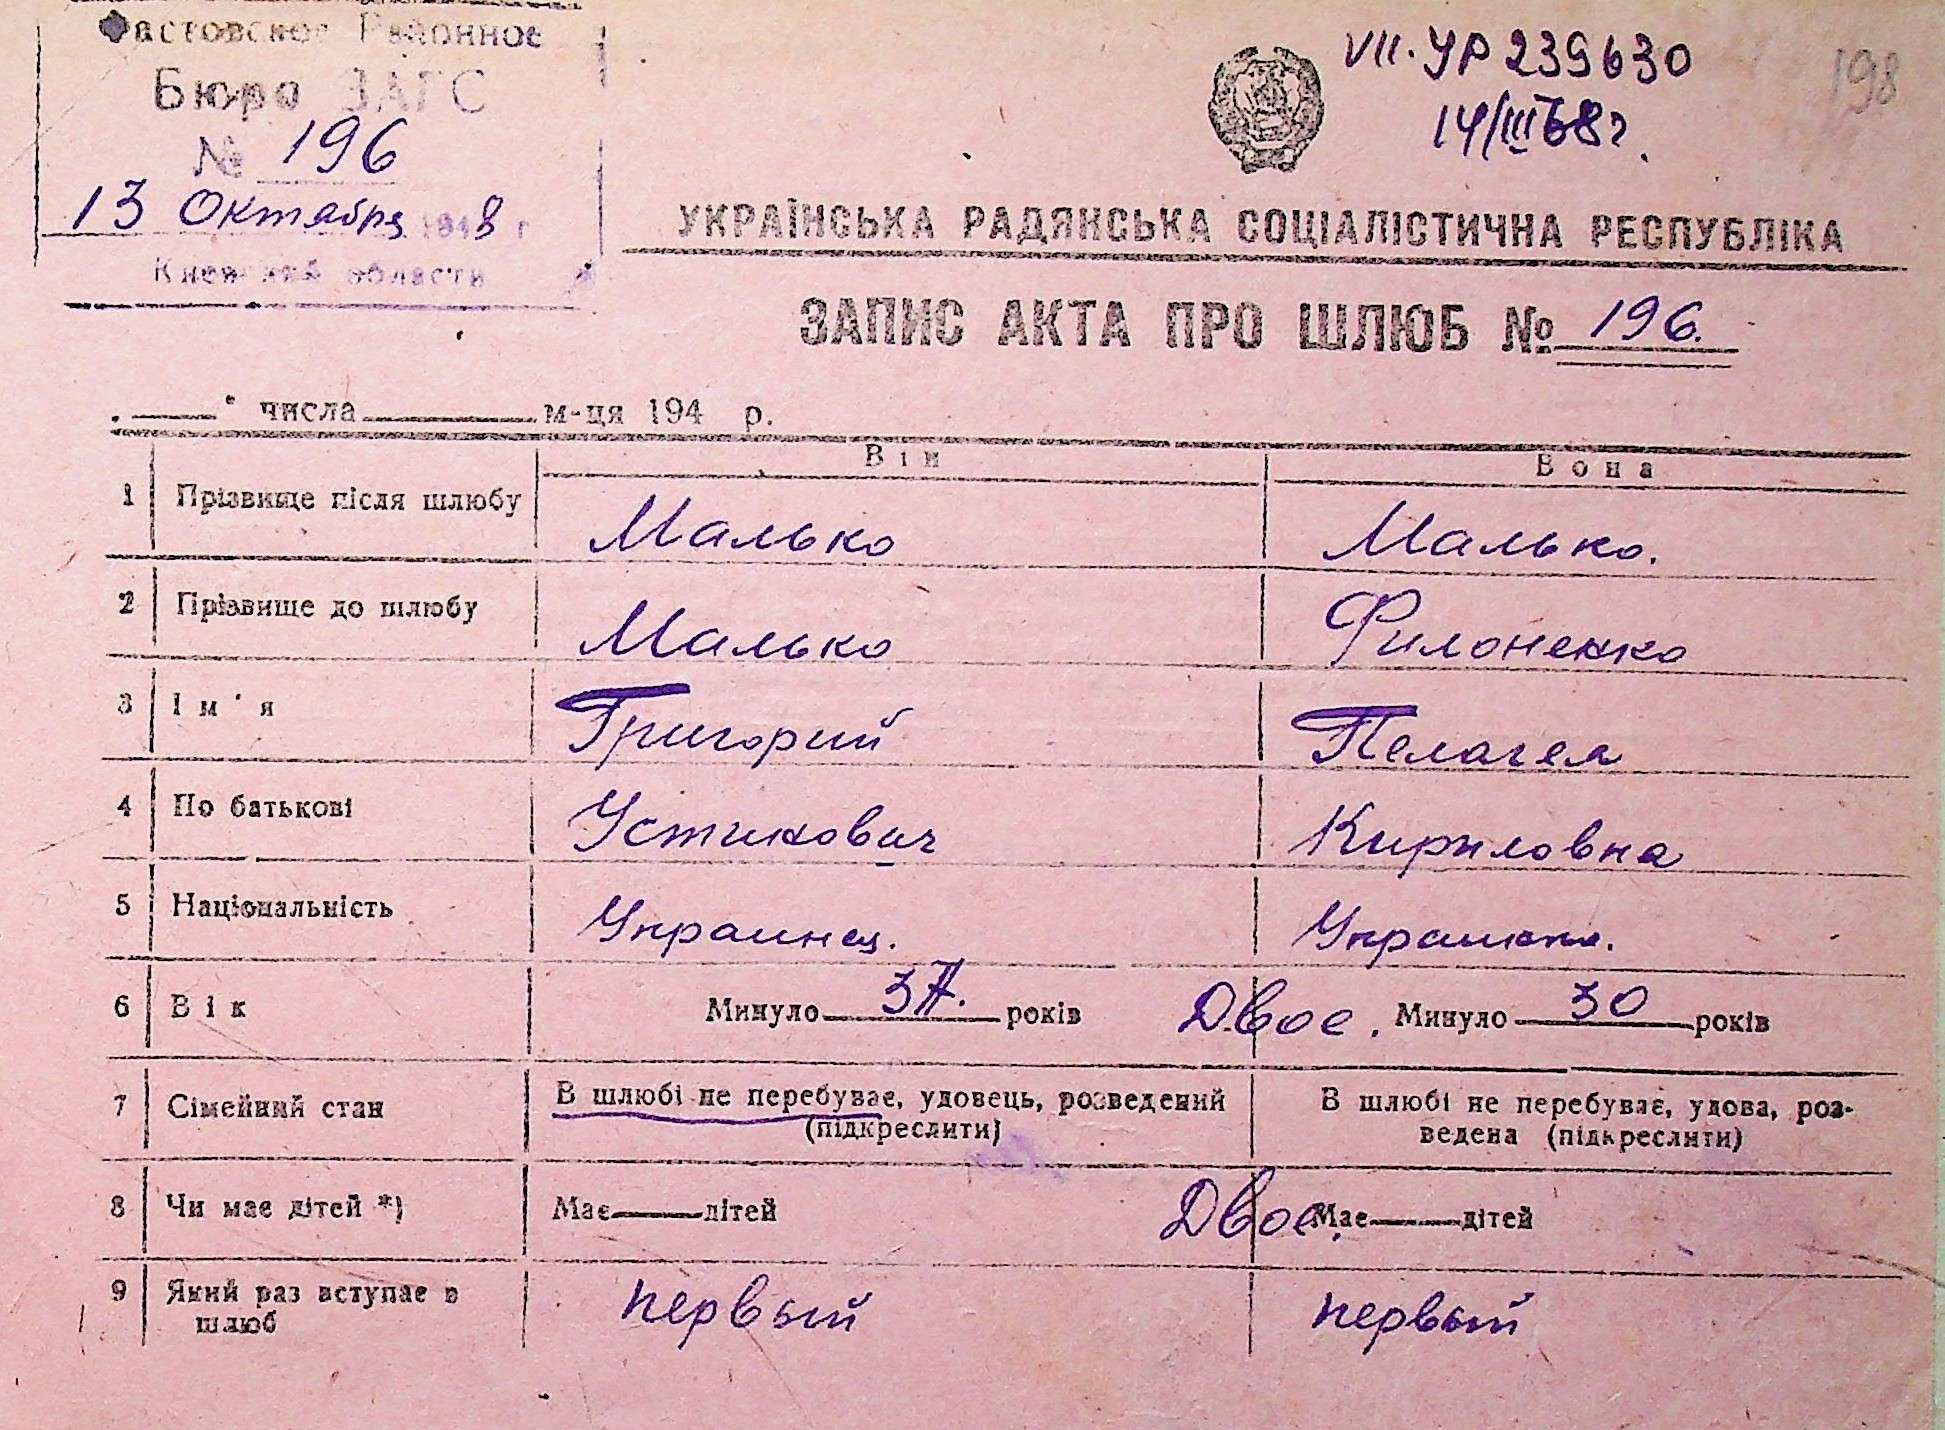 Фастовское Районное
Бюро ЗАГС
№ 196
13 Октября 1948 г
Киевской области
VII-УР 239630
14/III 68 г.
198
УКРАЇНСЬКА РАДЯНСЬКА СОЦІАЛІСТИЧНА РЕСПУБЛІКА
ЗАПИС АКТА ПРО ШЛЮБ № 196.
" " числа м-ця 194 р.
Він Вона
1 Прізвище після шлюбу Малько Малько.
2 Прізвище до шлюбу Малько Филоненко
3 Ім'я Григорий Пелагея
4 По батькові Устинович Кириловна
5 Національність Украинец. Украинка.
6 Вік Минуло 37. років Двое. Минуло 30 років
7 Сімейний стан В шлюбі не перебуває, удовець, розведений (підкреслити) В шлюбі не перебуває, удова, роз-
ведена (підкреслити)
8 Чи має дітей *) Має дітей Двое. Має дітей
9 Який раз вступає в шлюб первый первый